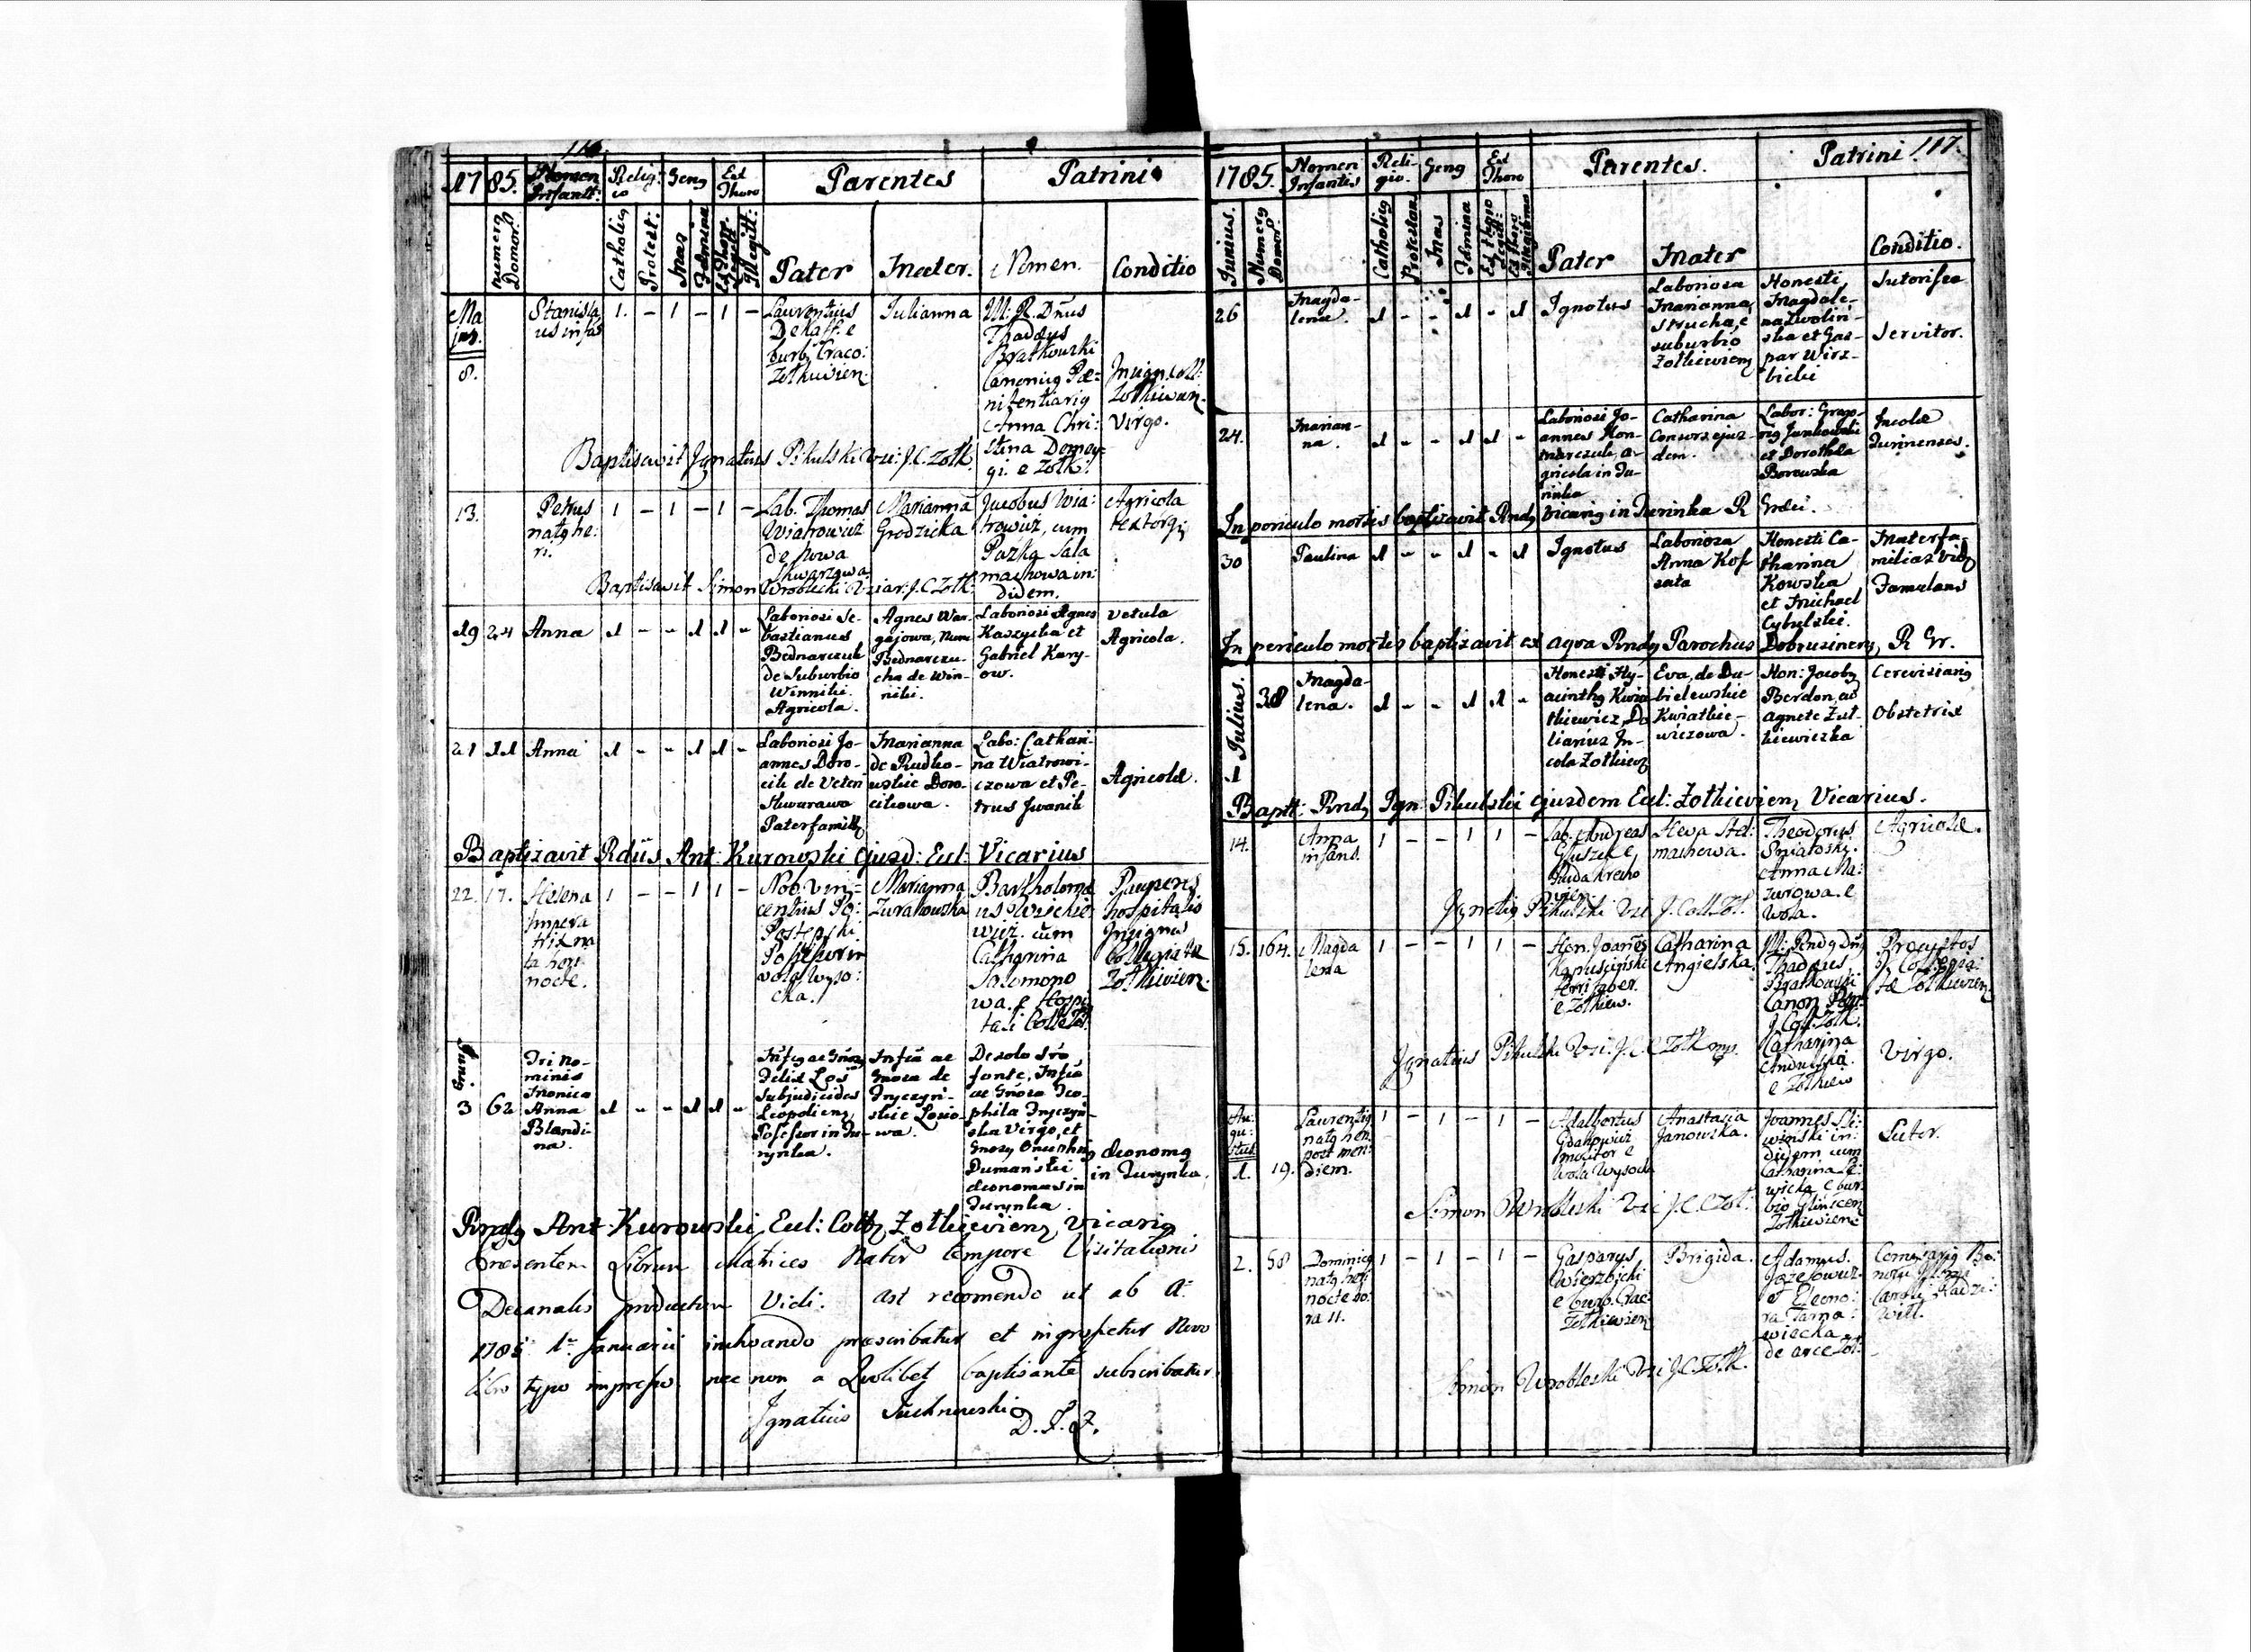 116.
17 85. Nomen Infantt: Relig:io Geng Ext Thoro Parentes Patrini
Numerg Domor: Catholig Protest: Mas Fæmina Illegitt: Pater Mater. Nomen. Conditio
Ma
jus.
8.
Stanisla
us infas
1. - 1 - 1 -
Laurentius
burb. Craco:
Zołkiewien.
Julianna
M: R. Dnus
Thadæus
Bratkowski
Canonicg Pœ-
nitentiarig
Anna Chri:
stina Domey-
gi. e Zołk:
Insign. Coll:
Zołkiewien.
Virgo.
Baptisavit Ignatius Pikulski Vri: J.C. Zołk.
13.
Petrus
natg he:
ri.
1 - 1 - 1 -
Lab. Thomas
Wiatrowicz
de Nowa
Skwarzawa
Marianna
Grodzicka
Jacobus Wia:
trowicz, cum
Pazka Sala
machowa in:
didem.
Agricola
textorgi
Baptisavit Simon Wroblecki Vicar: J.C Zołk:
19 24 Anna 1 - - 1 1 -
Laboriosi Se-
bastianus
Bednarczuk
de Suburbio
Winniki.
Agricola.
Agnes Wan-
gajowa, Nunc
Bednarczu-
cha de Win-
niki.
Laboriosi Agnes
Kaszycka et
Gabriel Kary-
ow.
Vetula
Agricola.
21 11 Anna 1 - - 1 1 -
Laboriosi Jo-
annes Doro-
cik de Veteri
Skwarawa
Paterfamilg
Marianna
de Rudko-
wskie Doro-
cikowa.
Labo: Cathari-
na Wiatrowi-
czowa et Pe-
trus Iwanik
Agricolæ.
Baptizavit Rdūs Ant: Kurowski ejusd: Eccl: Vicarius
22. 17. Helena
Impera
trix na
ta heri
nocte.
1 - - 1 1 -
Nob. Vin-
centius Po:
Postępski
Possessor in
vola Wyso:
cka.
Marianna
Zurakowska
Bartholomæ
us Woichie-
wicz. cum
Catharina
Salomono
wa. e Hospi
tali Colle Zoł.
Pauperes
hospitalis
Insignis
Collegiatæ
Zołkiewien.
Junig.
3 62
Tri no-
minis
Monica
Anna
Blandi-
na.
1 - - 1 1 -
Subjudicides
Leopolieng
Possessor in Tu-
rynka.
Mater de
Łosio-
wa.
De solo Sro
fonte,
phila
ska Virgo, et
Dumański
œconomus in
Turynka.
œconomg
in Turynka.
Rndg Ant: Kurowski Eccl: Colleg Zołkieviens Vicarig
Presentem Librum Matrices Nator tempore Visitationis
Decanalis productum Vidi. ast recomendo ut ab A:
1785 1a Januarii inchoando præscribatur et ingrossetur Novo
libro typo impresso nec non a Quolibet baptisante subscribatur
Ignatius Juchnowski
D. F. Z.
117.
1785. Nomen Infantis Reli-gio. Geng Ext Thoro Parentes. Patrini
Junius. Numerg Domor. Catholig Protestan. Mas Fæmina Pater Mater Conditio.
26
Magda-
lena.
1 - - 1 - 1
Ignotus
Laboriosa
Marianna
Strucha, e
suburbio
Zołkieviens
Honesti,
Magdale-
na Zwolin-
ska et Gas-
par Wirz-
bicki
Sutorissa
Servitor.
24.
Marian-
na.
1 - - 1 1 -
Laboriosi Jo-
annes Hon-
marczuk, a-
gricola in Tu-
rinka
Catharina
Consors ejus-
dem.
Labor: Grego-
rig Junkowski
et Dorothea
Borowska
Incolæ
Turinenses.
In periculo mortis baptizavit Rndg Vicarig in Turinka R Græci.
30 Paulina 1 - - 1 - 1 Ignotus
Laboriosa
Anna Kos
sata
Honesti Ca-
tharina
Kowska
et Michael
Cybulski.
Materfa-
milias Vidg
Famulans
In periculo mortis baptizavit ex aqva Rndg Parochus Dobrusineng R Gr.
Julius.
1
38
Magda-
lena.
1 - - 1 1 -
Honesti Hy-
acinthg Kwia
tkiewicz, Do
liarius In-
cola Zołkieg
Eva, de Du-
bielewskie
Kwiatkie-
wiczowa.
Hon: Jacobg
Berdon, ac
Agnete Zuł-
kiewiczka
Cerevisiarig
Obstetrix
Baptt: Rndg Ign: Pikulski ejusdem Eccl: Zołkieviens Vicarius.
14.
Anna
infans.
1 - - 1 1 -
Lab. Andreas
Gluszek e
Ruda Krecho
vien.
Heva Ad:
mashowa.
Theodorus
Sniatoski.
Anna Ma:
zurowa. e
Wola.
Agricolæ.
Ignatig Pikulski Vri J. Coll. Zoł.
15. 164. Magda
lena
1 - - 1 1 -
Hon. Joanēs
Kapuściński
ferri faber.
e Zołkiew.
Catharina
Angielska.
M: Rndg Dñ
Thadæus
Bratkowski
Canon Pœn:
J. Coll. Zołk.
Catharina
Andulska
e Zołkiew
Præpositos
J. Collegia:
tæ Zołkiewien.
Virgo.
Ignatius Pikulski Vri. J. C. Zołk mp.
Au:
gu:
stus
1. 19.
Laurentig
natg heri
post meri:
diem.
1 - 1 - 1 -
Adalbertus
Gdakowicz
molitor e
Wola Wysock
Anastasia
Janowska.
Joannes Sli:
wiński in:
didem cum
Catharina
wicka e bur:
bio Glinscen
Zołkiewien:
Sutor.
Simon Wrobleski Vri J.C. Zoł:
2. 58
Dominicg
natg heri
nocte ho:
ra 11.
1 - 1 - 1 -
Gasparus
Wierzbicki
e burb. Crac:
Zołkiewien
Brigida.
Adamus
Jozefowicz
et Eleono:
ra Tarna:
wiecka
de arce Zoł:
Comisarig Bo:
Caroli Radzi:
wiłł.
Simon Wrobleski Vri J.C. Zołk.